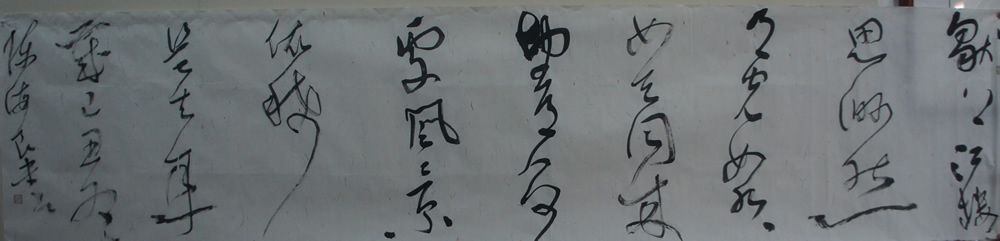 獨上江樓
思渺然
月光如水々
如天同來
望月人何
處風景
依稀
似去年
歲己丑
陳海良書